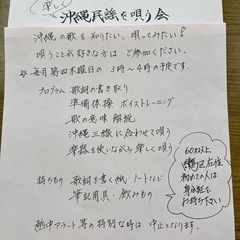 楽しい
沖縄民謡を唄う会
沖縄の歌を知りたい、唄ってみたい!
唄うことが好きな方は ご参加ください。
毎月第四木曜日の 3時~4時の予定です。
プログラム 歌詞の書き取り
準備体操 ボイストレーニング
歌の意味 解説
沖縄三線に合わせて唄う
楽器を使いながら楽しく唄う
持ちもの 歌詞を書く紙・ノートなど
筆記用具・飲みもの
60才以上
在住
初めての人は
身分証を
お持ち下さい
熱中アラート等の特別な時は 中止になります。